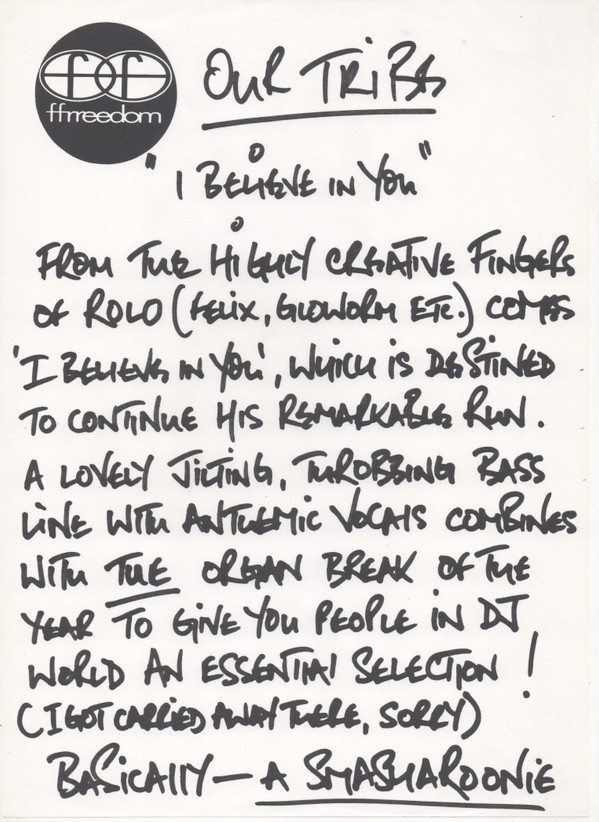 ffrreedom
OUR TRIBE
"I BELIEVE IN YOU"
FROM THE HIGHLY CREATIVE FINGERS
OF ROLO (FELIX, GLOWORM ETC.) COMES
'I BELIEVE IN YOU', WHICH IS DESTINED
TO CONTINUE HIS REMARKABLE RUN.
A LOVELY JILTING, THROBBING BASS
LINE WITH ANTHEMIC VOCALS COMBINES
WITH THE ORGAN BREAK OF THE
YEAR TO GIVE YOU PEOPLE IN DJ
WORLD AN ESSENTIAL SELECTION!
(I GOT CARRIED AWAY THERE, SORRY)
BASICALLY — A SMASHAROONIE